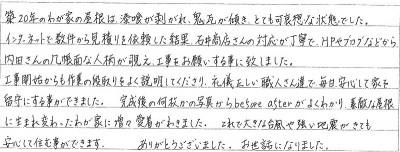 築20年のわが家の屋根は、漆喰が剥がれ、鬼瓦が傾き、とても可哀想な状態でした。
インターネットで数件から見積りを依頼した結果、石井商店さんの対応が丁寧で、HPやブログなどから
内田さんの几帳面な人柄が覗え、工事をお願いする事に致しました。
工事開始からも作業の段取りをよく説明してくださり、礼儀正しい職人さん達で、毎日安心して家を
留守にする事ができました。 完成後の何枚かの写真からbefore afterがよくわかり、素敵な屋根
に生まれ変わったわが家に増々愛着がわきました。 これで大きな台風や強い地震がきても
安心して住む事ができます。 ありがとうございました。 お世話になりました。